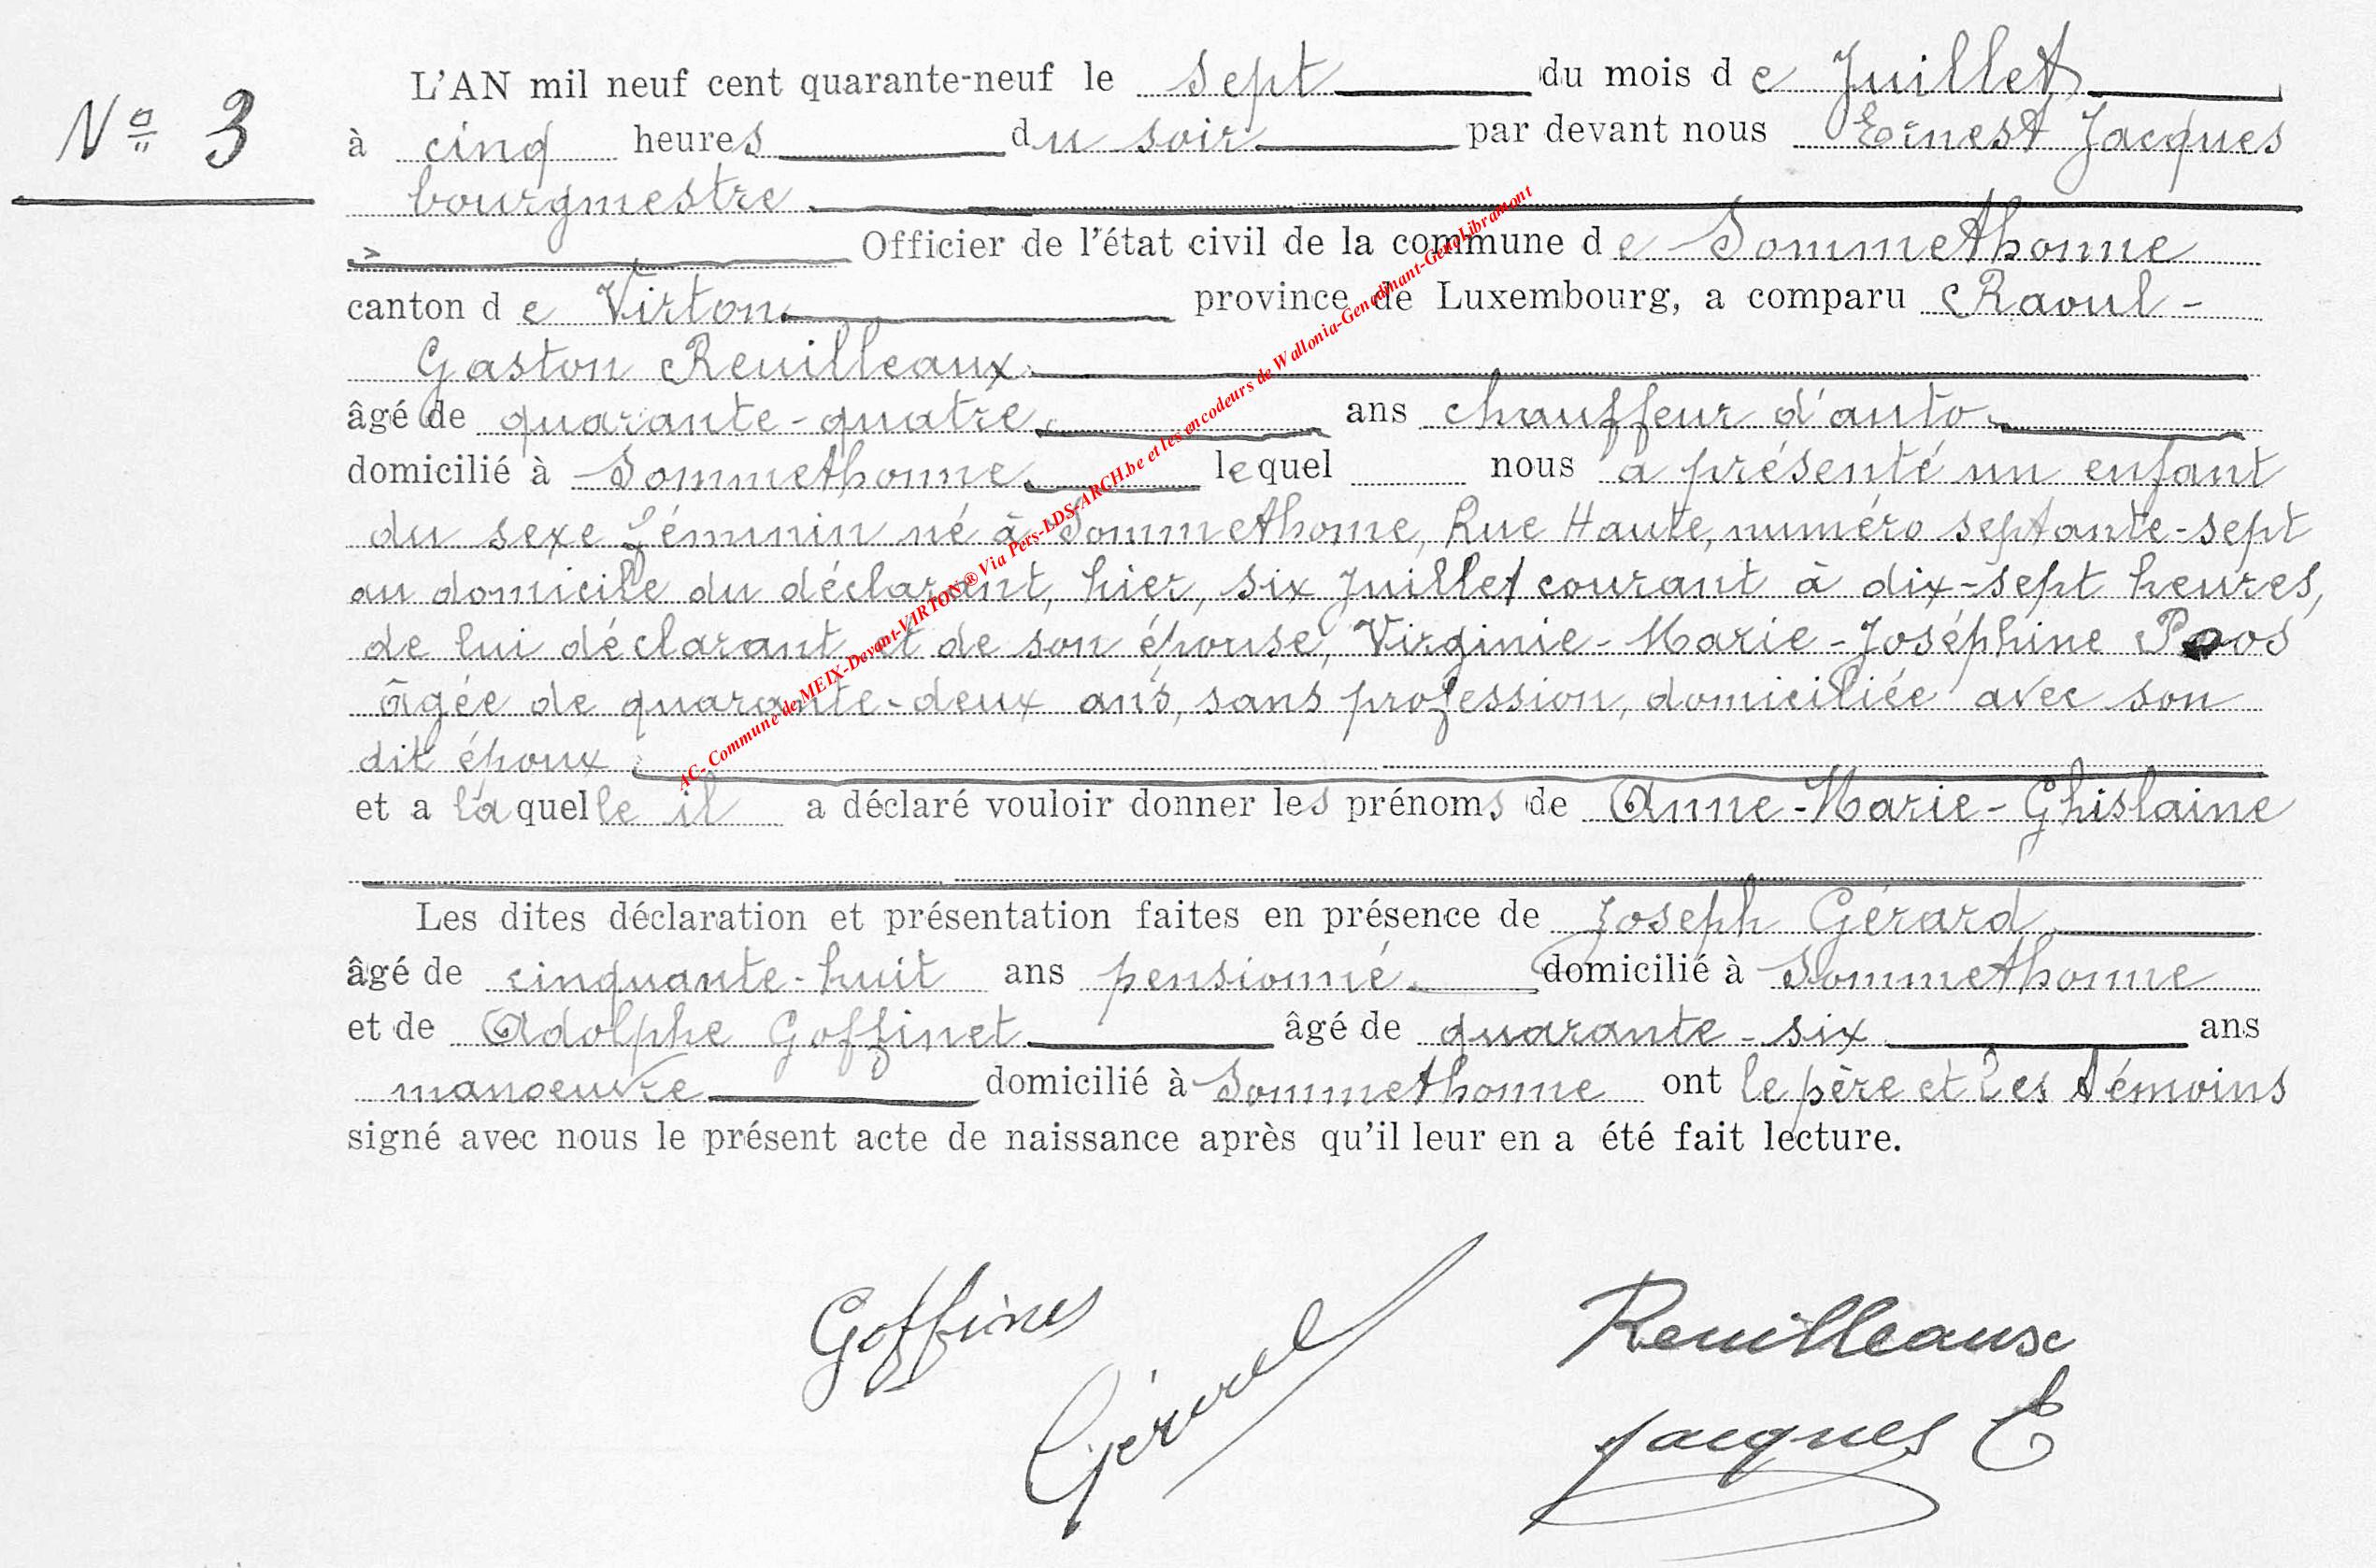 L'AN mil neuf cent quarante-neuf le sept du mois de Juillet
N° 3
à cinq heures du soir par devant nous Ernest Jacques
bourgmestre
Officier de l'état civil de la commune de Sommethonne
canton de Virton province de Luxembourg, a comparu Raoul-
Gaston Reuilleaux
âgé de quarante-quatre ans chauffeur d'auto
domicilié à Sommethonne lequel nous a présenté un enfant
du sexe féminin né à Sommethonne, Rue Haute, numéro septante-sept
au domicile du déclarant, hier, six Juillet courant à dix-sept heures,
de lui déclarant et de son épouse, Virginie-Marie-Joséphine
âgée de quarante-deux ans, sans profession, domiciliée avec son
dit époux
et a laquelle il a déclaré vouloir donner les prénoms de Anne-Marie-Ghislaine
Les dites déclaration et présentation faites en présence de Joseph Gérard
âgé de cinquante-huit ans pensionné domicilié à Sommethonne
et de Adolphe Goffinet âgé de quarante-six ans
manoeuvre domicilié à Sommethonne ont le père et les témoins
signé avec nous le présent acte de naissance après qu'il leur en a été fait lecture.
AC- Commune de MEIX-Devant-VIRTON® Via Pers-LDS-ARCH.be et les encodeurs de Wallonia-Genedinant-GeneLibramont
Goffinet
Gérard
Reuilleaux
Jacques E